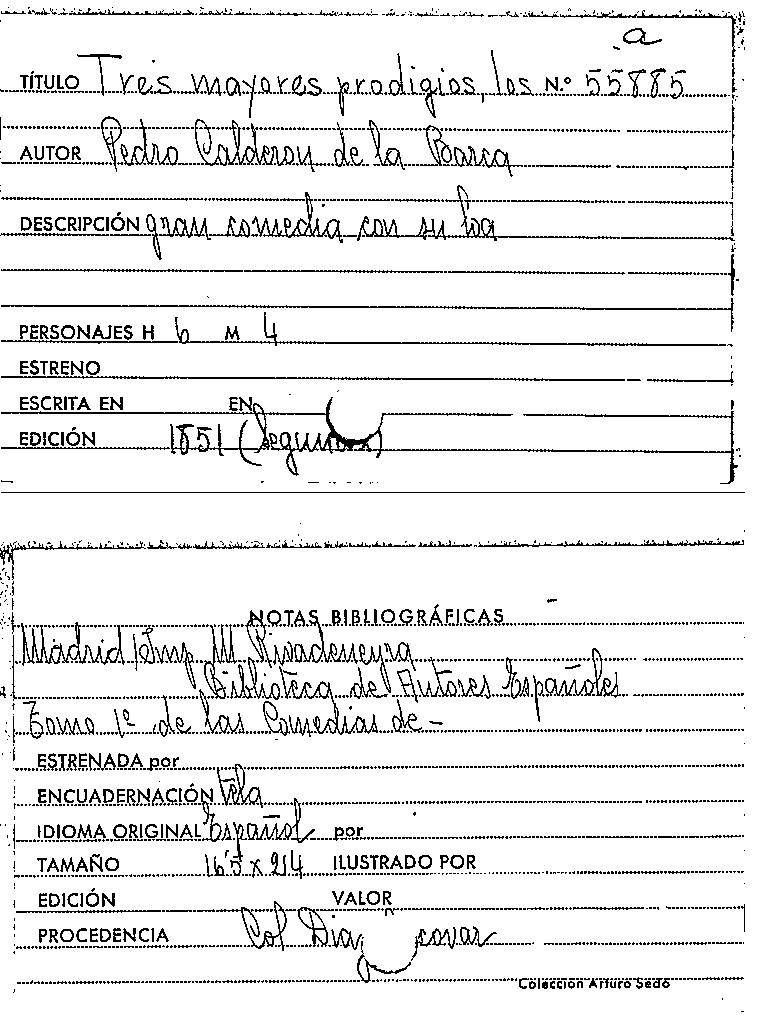 a
TÍTULO Tres mayores prodigios, los N.º 55885
AUTOR Pedro Calderon de la Barca
DESCRIPCIÓN gran comedia con su loa
PERSONAJES H 6 M 4
ESTRENO
ESCRITA EN EN
EDICIÓN 1851 (Segunda)
NOTAS BIBLIOGRÁFICAS
Madrid Imp M Rivadeneyra
Biblioteca de Autores Españoles
Tomo 1º de las Comedias de -
ESTRENADA por
ENCUADERNACIÓN Tela
IDIOMA ORIGINAL Español por
TAMAÑO 16'5 x 24 ILUSTRADO POR
EDICIÓN VALOR
PROCEDENCIA Col Dia covar
Colección Arturo Sedó